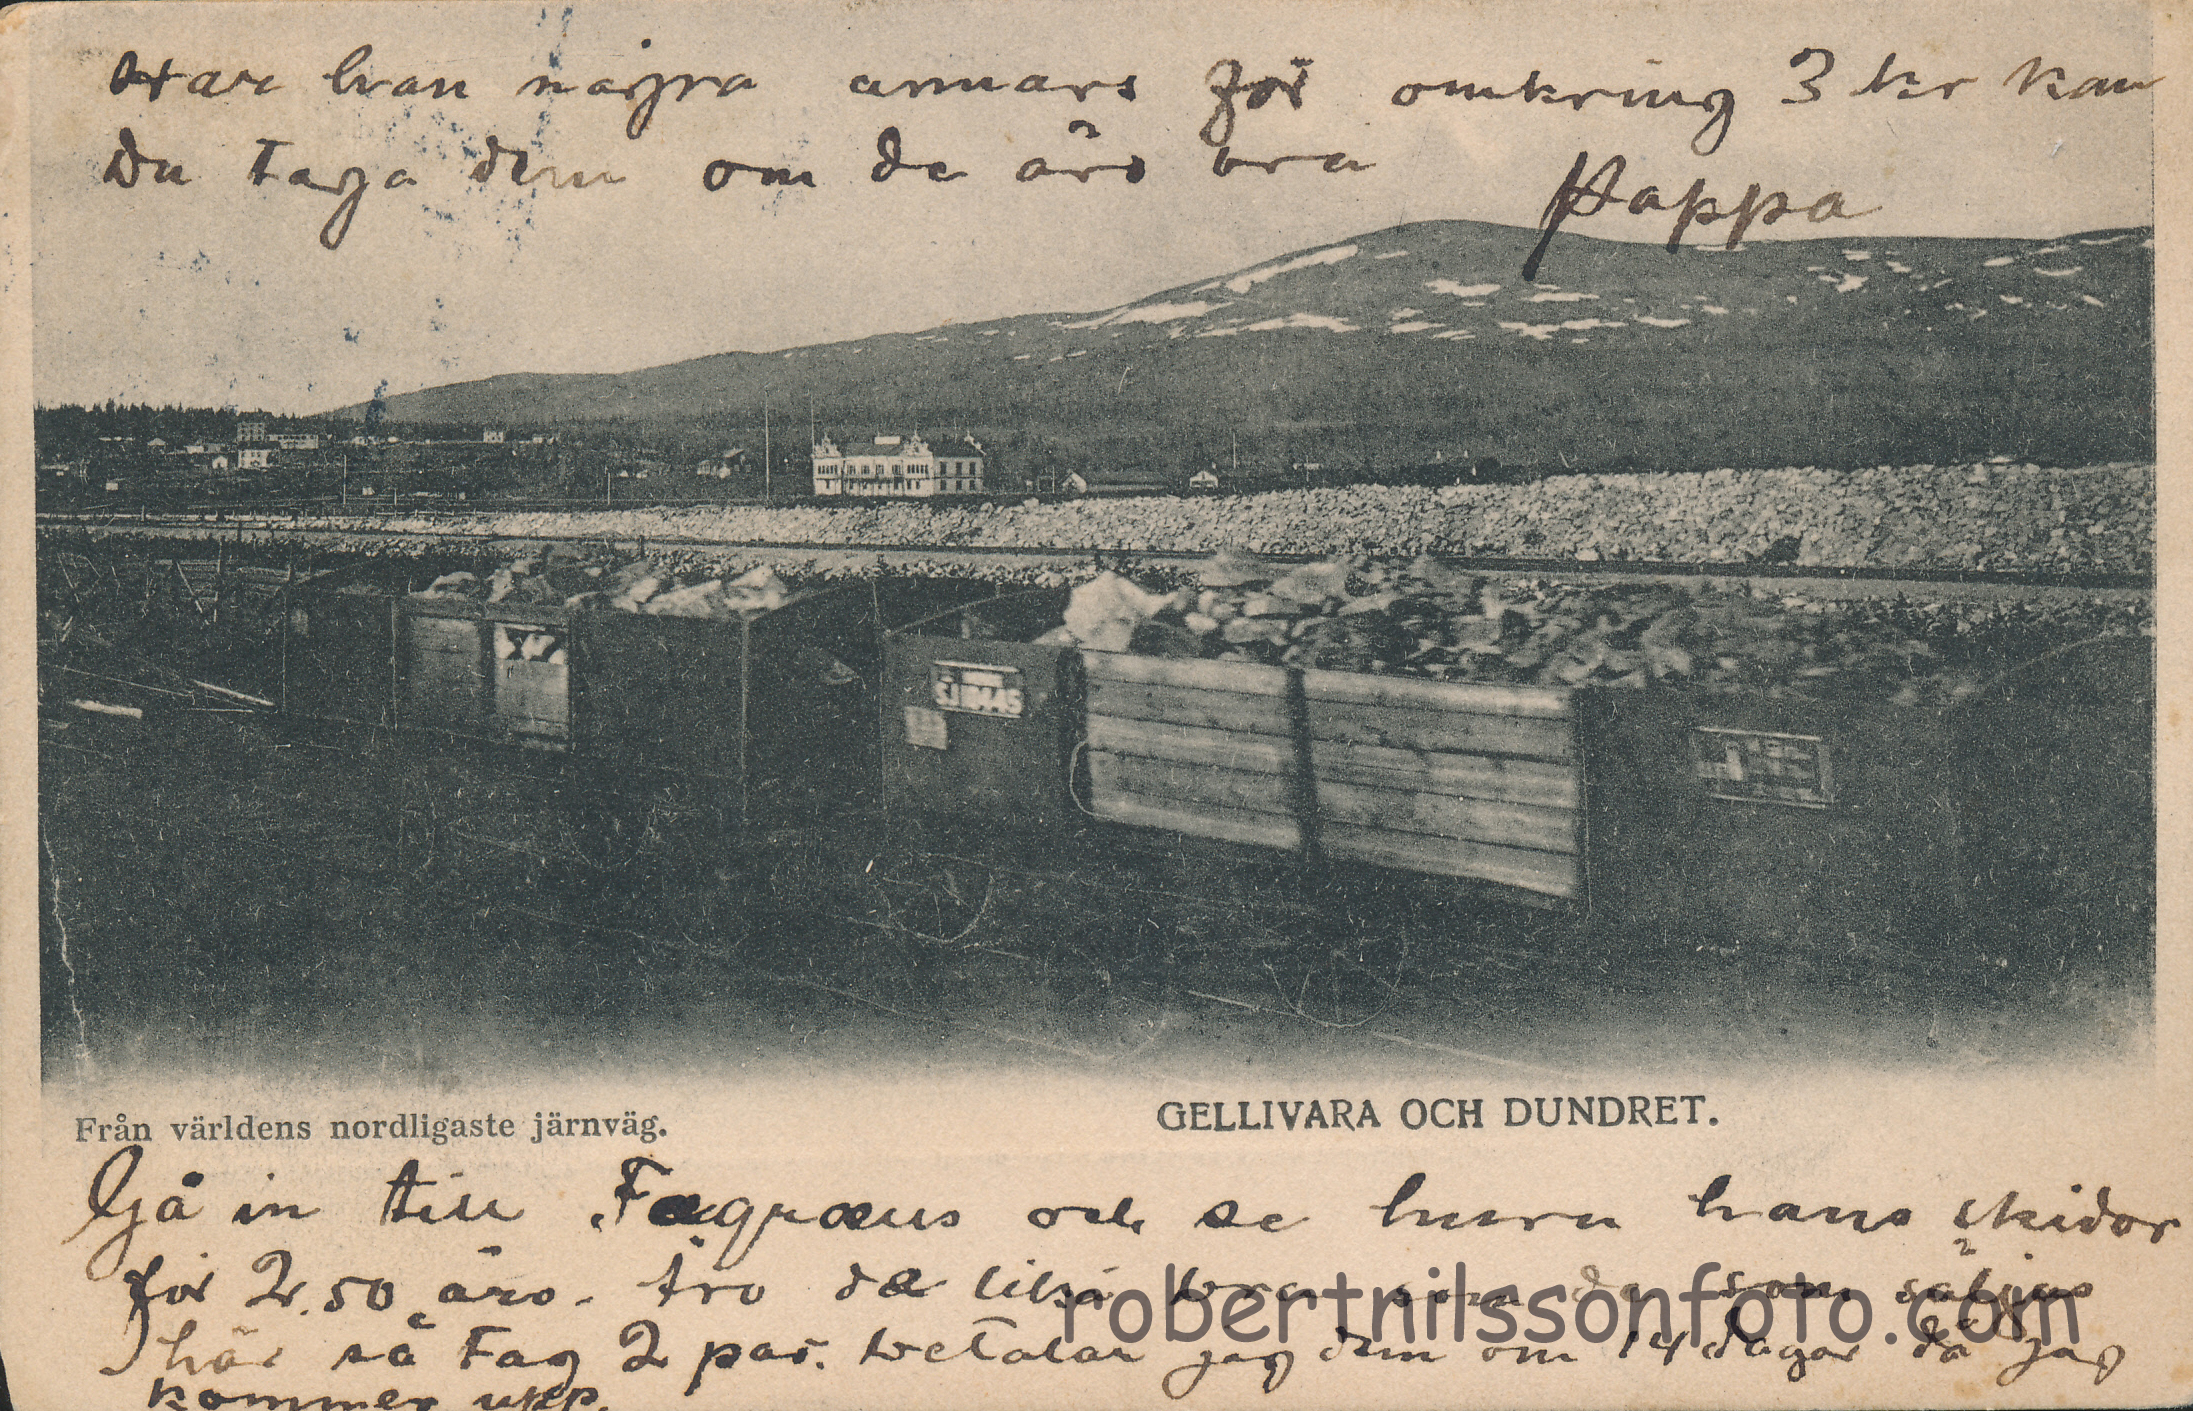 Har han några annars för omkring 3 kr kan
Du taga dem om de äro bra
Pappa
SJ
Från världens nordligaste järnväg.
GELLIVARA OCH DUNDRET.
Gå in till Fagræus och se huru hans skidor
för 2.50 äro. tro de lika bra som de som säljas
här så Tag 2 par. betalar jag dem om 14 dagar då jag
kommer upp.
robertnilssonfoto.com